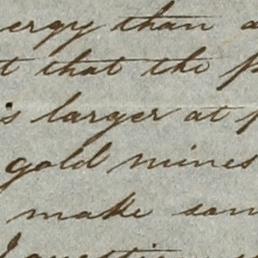 ergy than a
t that the p
is larger at p
gold mines
make som